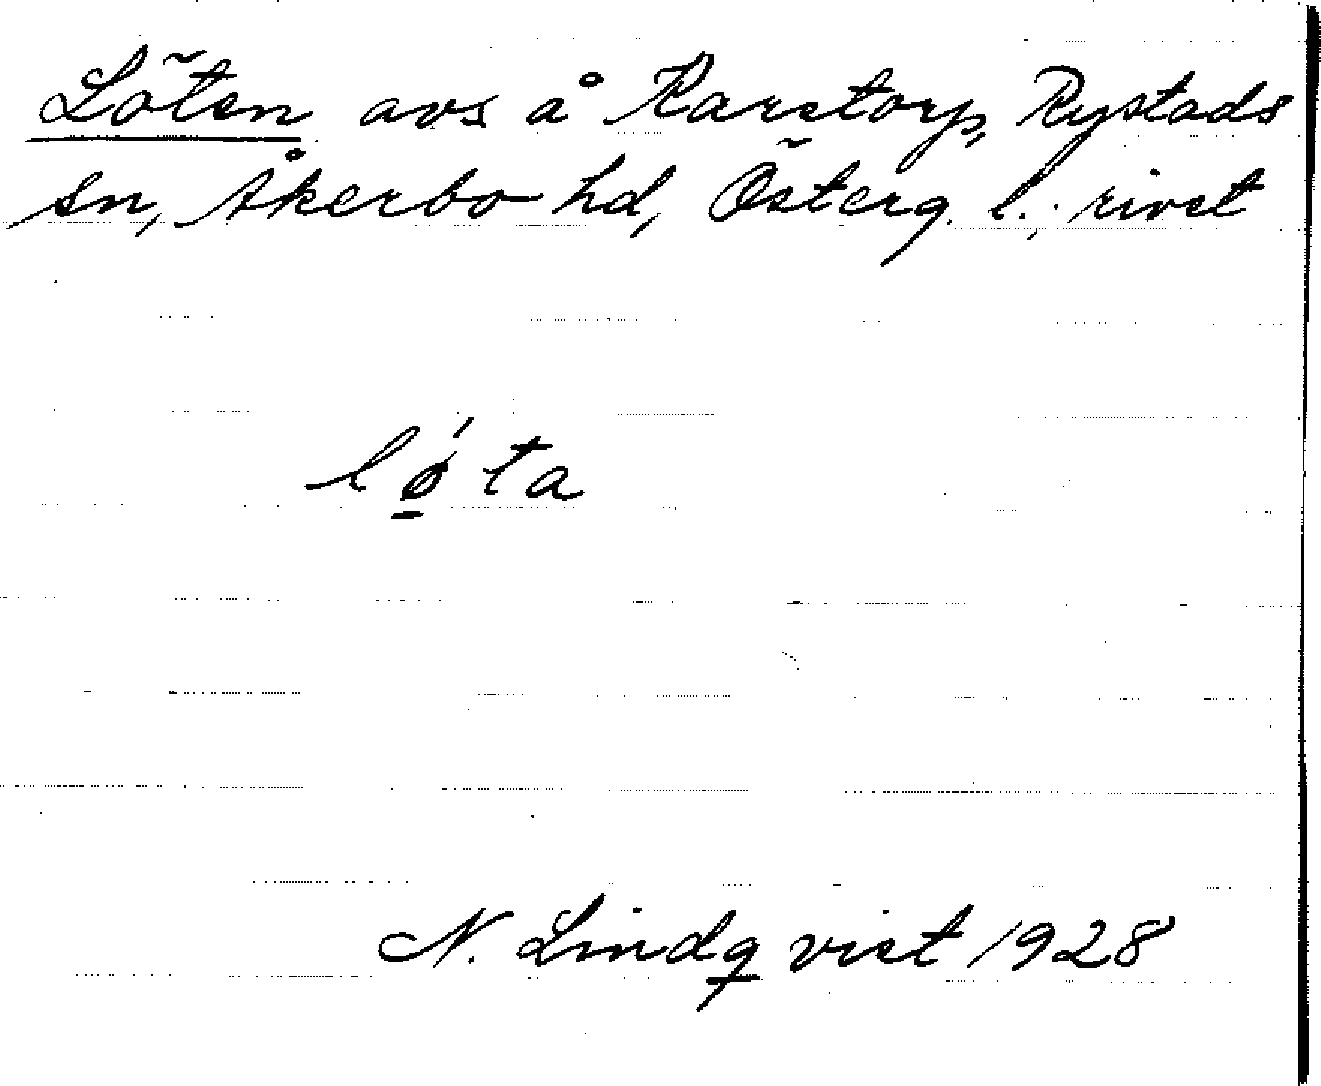 Löten avs å Karstorp, Rystads
sn, Åkerbo hd, Österg. l.; rivet
lǿ̱ta
N. Lindqvist 1928